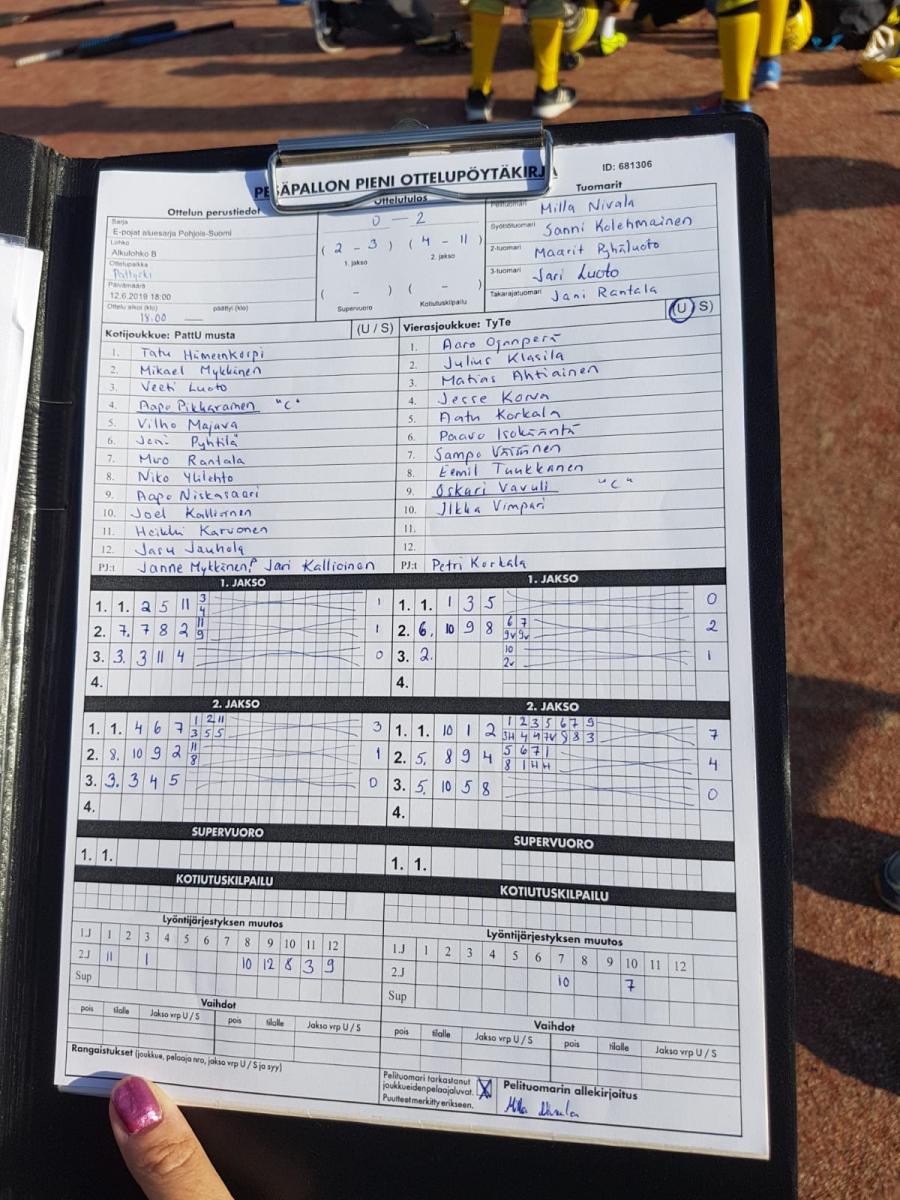 PESÄPALLON PIENI OTTELUPÖYTÄKIRJA
ID: 681306
Ottelun perustiedot
Sarja
E-pojat aluesarja Pohjois-Suomi
Lohko
Alkulohko B
Ottelupaikka
Päivämäärä
12.6.2019 18:00
Ottelu alkoi (klo) 18.00 päättyi (klo)
Ottelutulos
0 – 2
( 2 – 3 ) ( 4 – 11 )
1. jakso 2. jakso
( – ) ( – )
Supervuoro Kotiutuskilpailu
Tuomarit
Pelituomari Milla Nivala
Syöttötuomari Sanni Kolehmainen
2-tuomari Maarit Pyhäluoto
3-tuomari Jari Luoto
Takarajatuomari Jani Rantala
Kotijoukkue: PattU musta (U / S)
1. Tatu Hämeenkorpi
2. Mikael Mykkänen
3. Veeti Luoto
4. Aapo Pikkarainen "C"
5. Vilho Majava
6. Joni Pyhtilä
7. Miro Rantala
8. Niko Ylilehto
9. Aapo Niskasaari
10. Joel Kallioinen
11. Heikki Karvonen
12. Jasu Jauhola
PJ:t Janne Mykkänen, Jari Kallioinen
Vierasjoukkue: TyTe (U / S)
1. Aaro Ojanperä
2. Julius Klasila
3. Matias Ahtiainen
4. Jesse Korva
5. Aatu Korkala
6. Paavo Isokääntä
7. Sampo Väisänen
8. Eemil Tuukkanen
9. Oskari Vavuli "C"
10. Ilkka Vimpari
11.
12.
PJ:t Petri Korkala
1. JAKSO
1. 1. 2 5 11 3 4 1
2. 7. 7 8 2 11 9 1
3. 3. 3 11 4 0
4.
1. JAKSO
1. 1. 1 3 5 0
2. 6. 10 9 8 6 7 9v 9v 2
3. 2. 10 2v 1
4.
2. JAKSO
1. 1. 4 6 7 1 2 11 3 5 5 3
2. 8. 10 9 2 11 8 1
3. 3. 3 4 5 0
4.
2. JAKSO
1. 1. 10 1 2 1 2 3 5 6 7 9 7
2. 5. 8 9 4 5 6 7 1 8 1 H H 4
3. 5. 10 5 8 0
4.
SUPERVUORO
1. 1.
SUPERVUORO
1. 1.
KOTIUTUSKILPAILU
KOTIUTUSKILPAILU
Lyöntijärjestyksen muutos
1.J 1 2 3 4 5 6 7 8 9 10 11 12
2.J 11 1 10 12 8 3 9
Sup
Lyöntijärjestyksen muutos
1.J 1 2 3 4 5 6 7 8 9 10 11 12
2.J 10 7
Sup
Vaihdot
pois tilalle Jakso vrp U / S pois tilalle Jakso vrp U / S
Vaihdot
pois tilalle Jakso vrp U / S pois tilalle Jakso vrp U / S
Rangaistukset (joukkue, pelaaja nro, jakso vrp U / S ja syy)
Pelituomari tarkastanut
joukkueidenpelaajaluvat. X
Puutteet merkitty erikseen.
Pelituomarin allekirjoitus
Milla Nivala